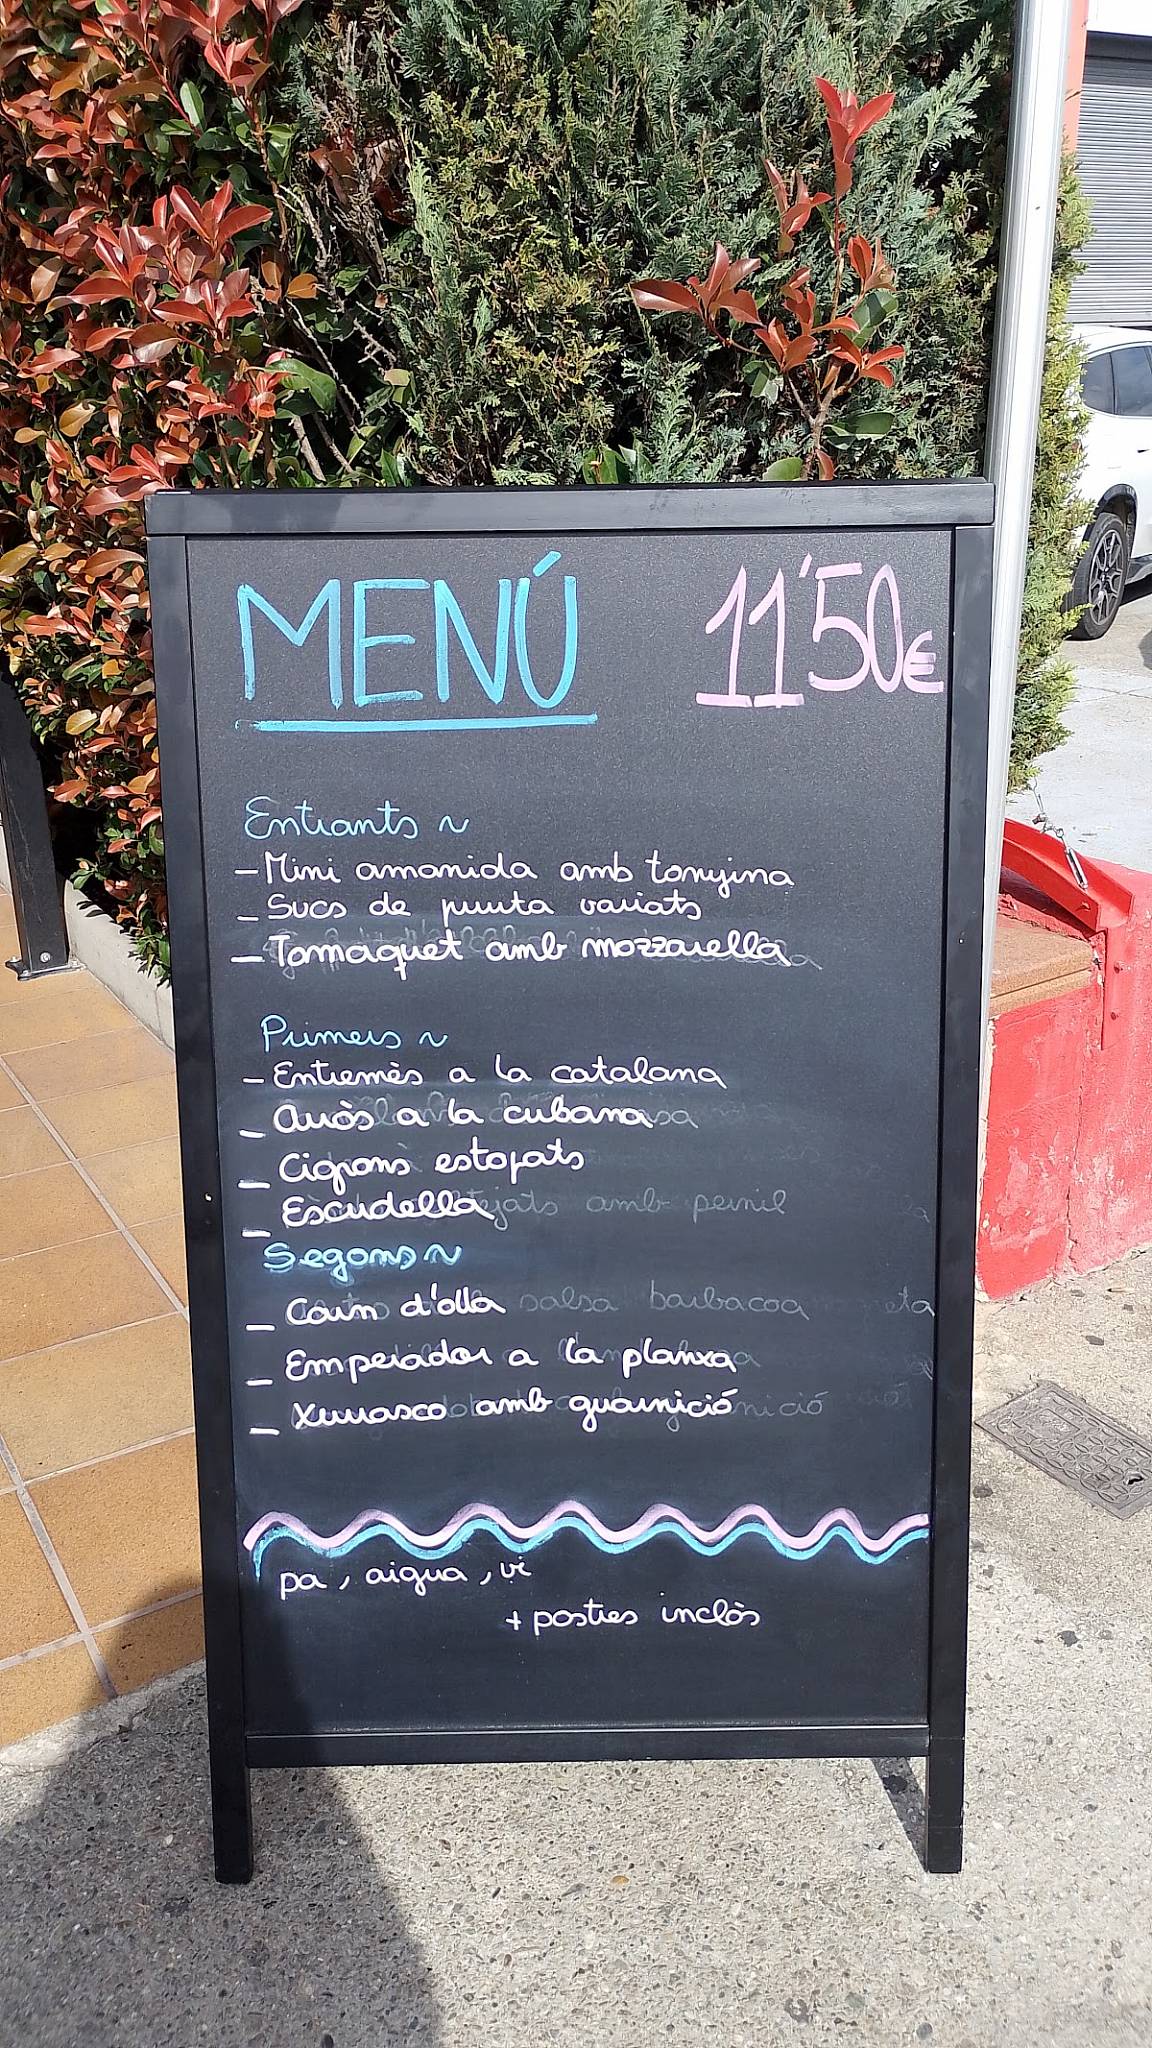 MENÚ 11'50€
Entrants ~
- Mini amanida amb tonyina
- Sucs de fruita variats
- Tomaquet amb mozzarella
Primers ~
- Entremès a la catalana
- Arròs a la cubana
- Cigrons estofats
- Escudella
Segons ~
- Carn d'olla
- Emperador a la planxa
- Xurrasco amb guarnició
pa, aigua, vi
+ postres inclòs